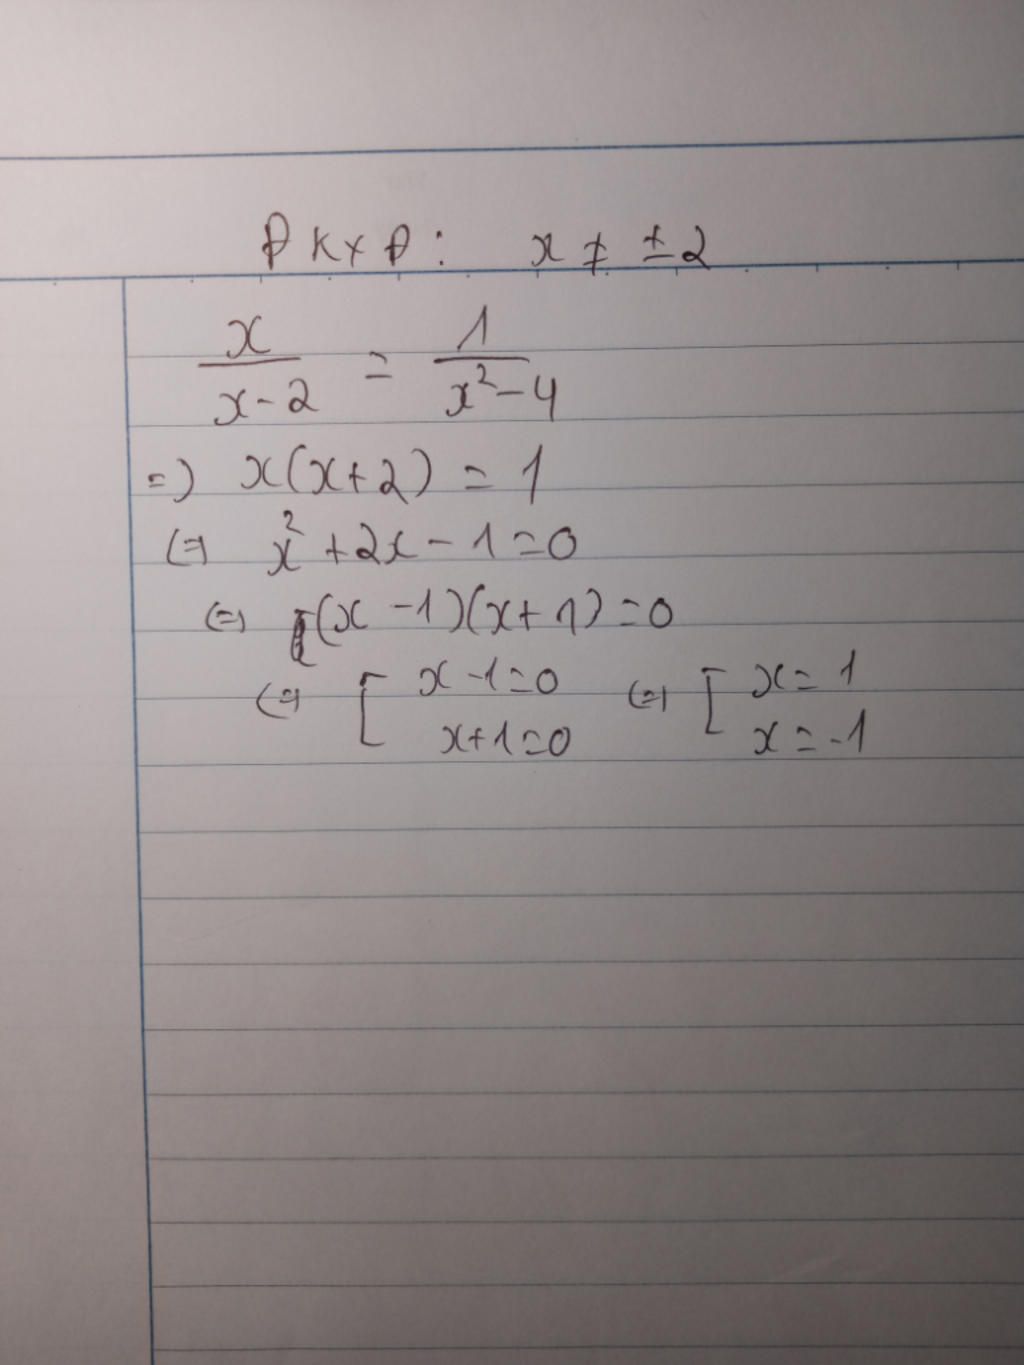 ĐKXĐ: x ≠ ±2
x/(x-2) = 1/(x²-4)
=> x(x+2) = 1
<=> x²+2x-1=0
<=> (x-1)(x+1)=0
<=> [ x-1=0 <=> [ x=1
x+1=0 x=-1